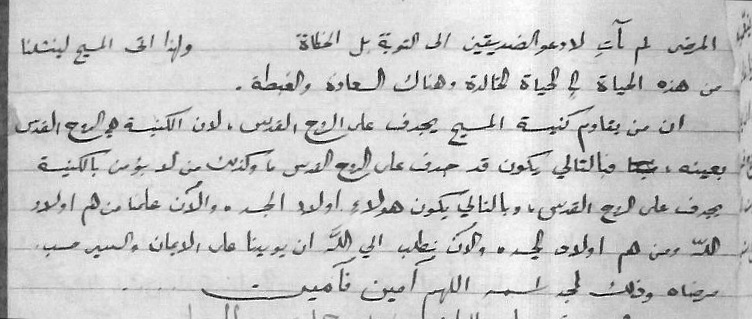 المرضى لم آتِ لادعو الصديقين الى التوبة بل الخطاة ولهذا اتى المسيح لينتشلنا
من هذه الحياة الى الحياة الخالدة وهناك السعادة والغبطة .
ان من يقاوم كنيسة المسيح يجدف على الروح القدس ، لان الكنيسة هي الروح القدس
بعينه ، فبالتالي يكون قد جدف على الروح القدس ، وكذلك من لا يؤمن بالكنيسة
يجدف على الروح القدس ، وبالتالي يكون هولاء اولاد الجسد . والآن علمنا من هم اولاد
الله ومن هم اولاد الجسد . والآن نطلب الى الله ان يربينا على الايمان والسير حسب
مرضاه وذلك لمجد اسمه اللهم آمين فآمين .